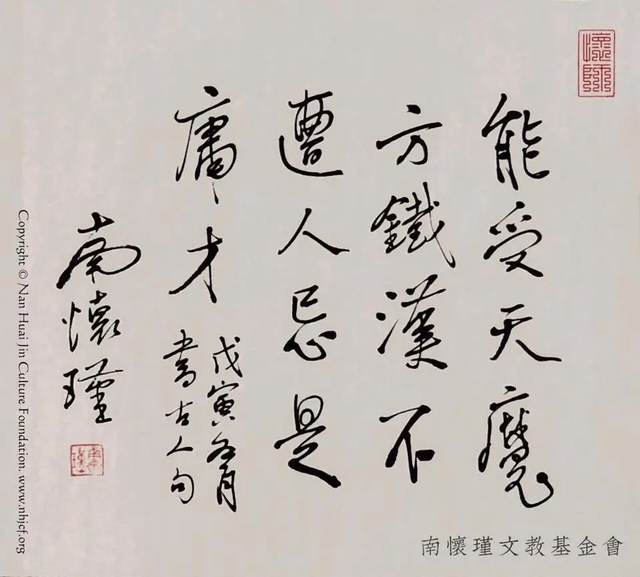 懷師
能受天魔
方鐵漢不
遭人忌是
庸才
戊寅冬月
書古人句
南懷瑾
南懷瑾文教基金會
Copyright © Nan Huai Jin Culture Foundation. www.nhjcf.org